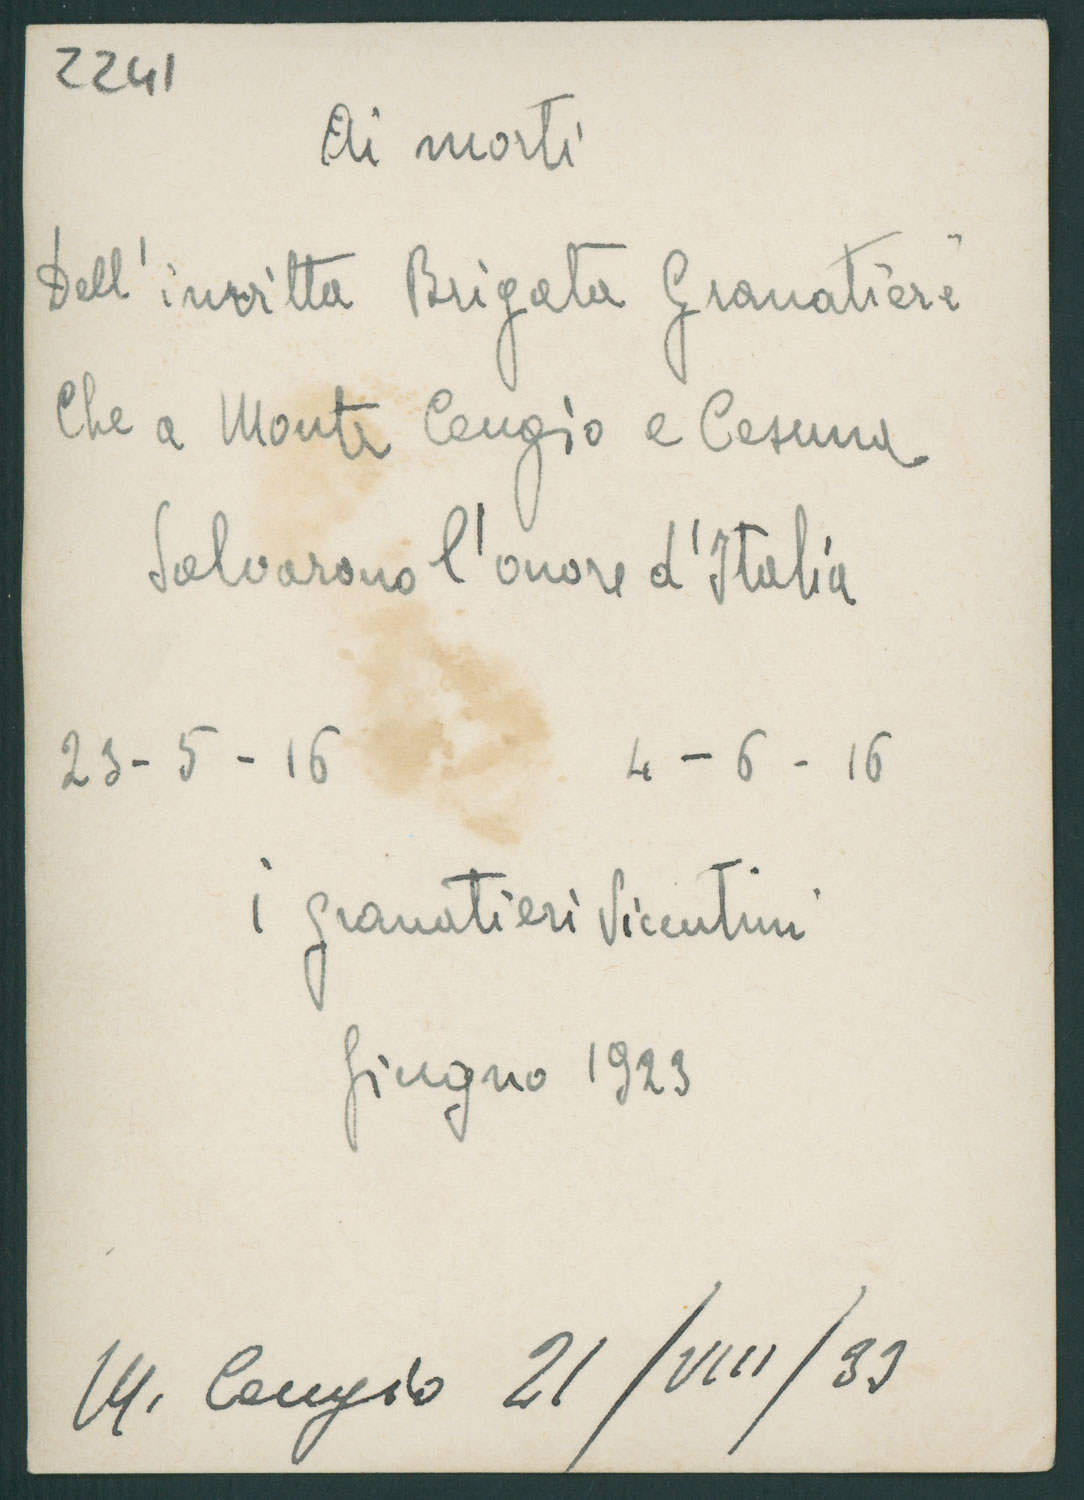 2241
Ai morti
Dell'invitta Brigata Granatieri
Che a Monte Cengio e Cesuna
Salvarono l'onore d'Italia
23-5-16 4-6-16
i granatieri Vicentini
Giugno 1923
M. Cengio 21/VIII/33